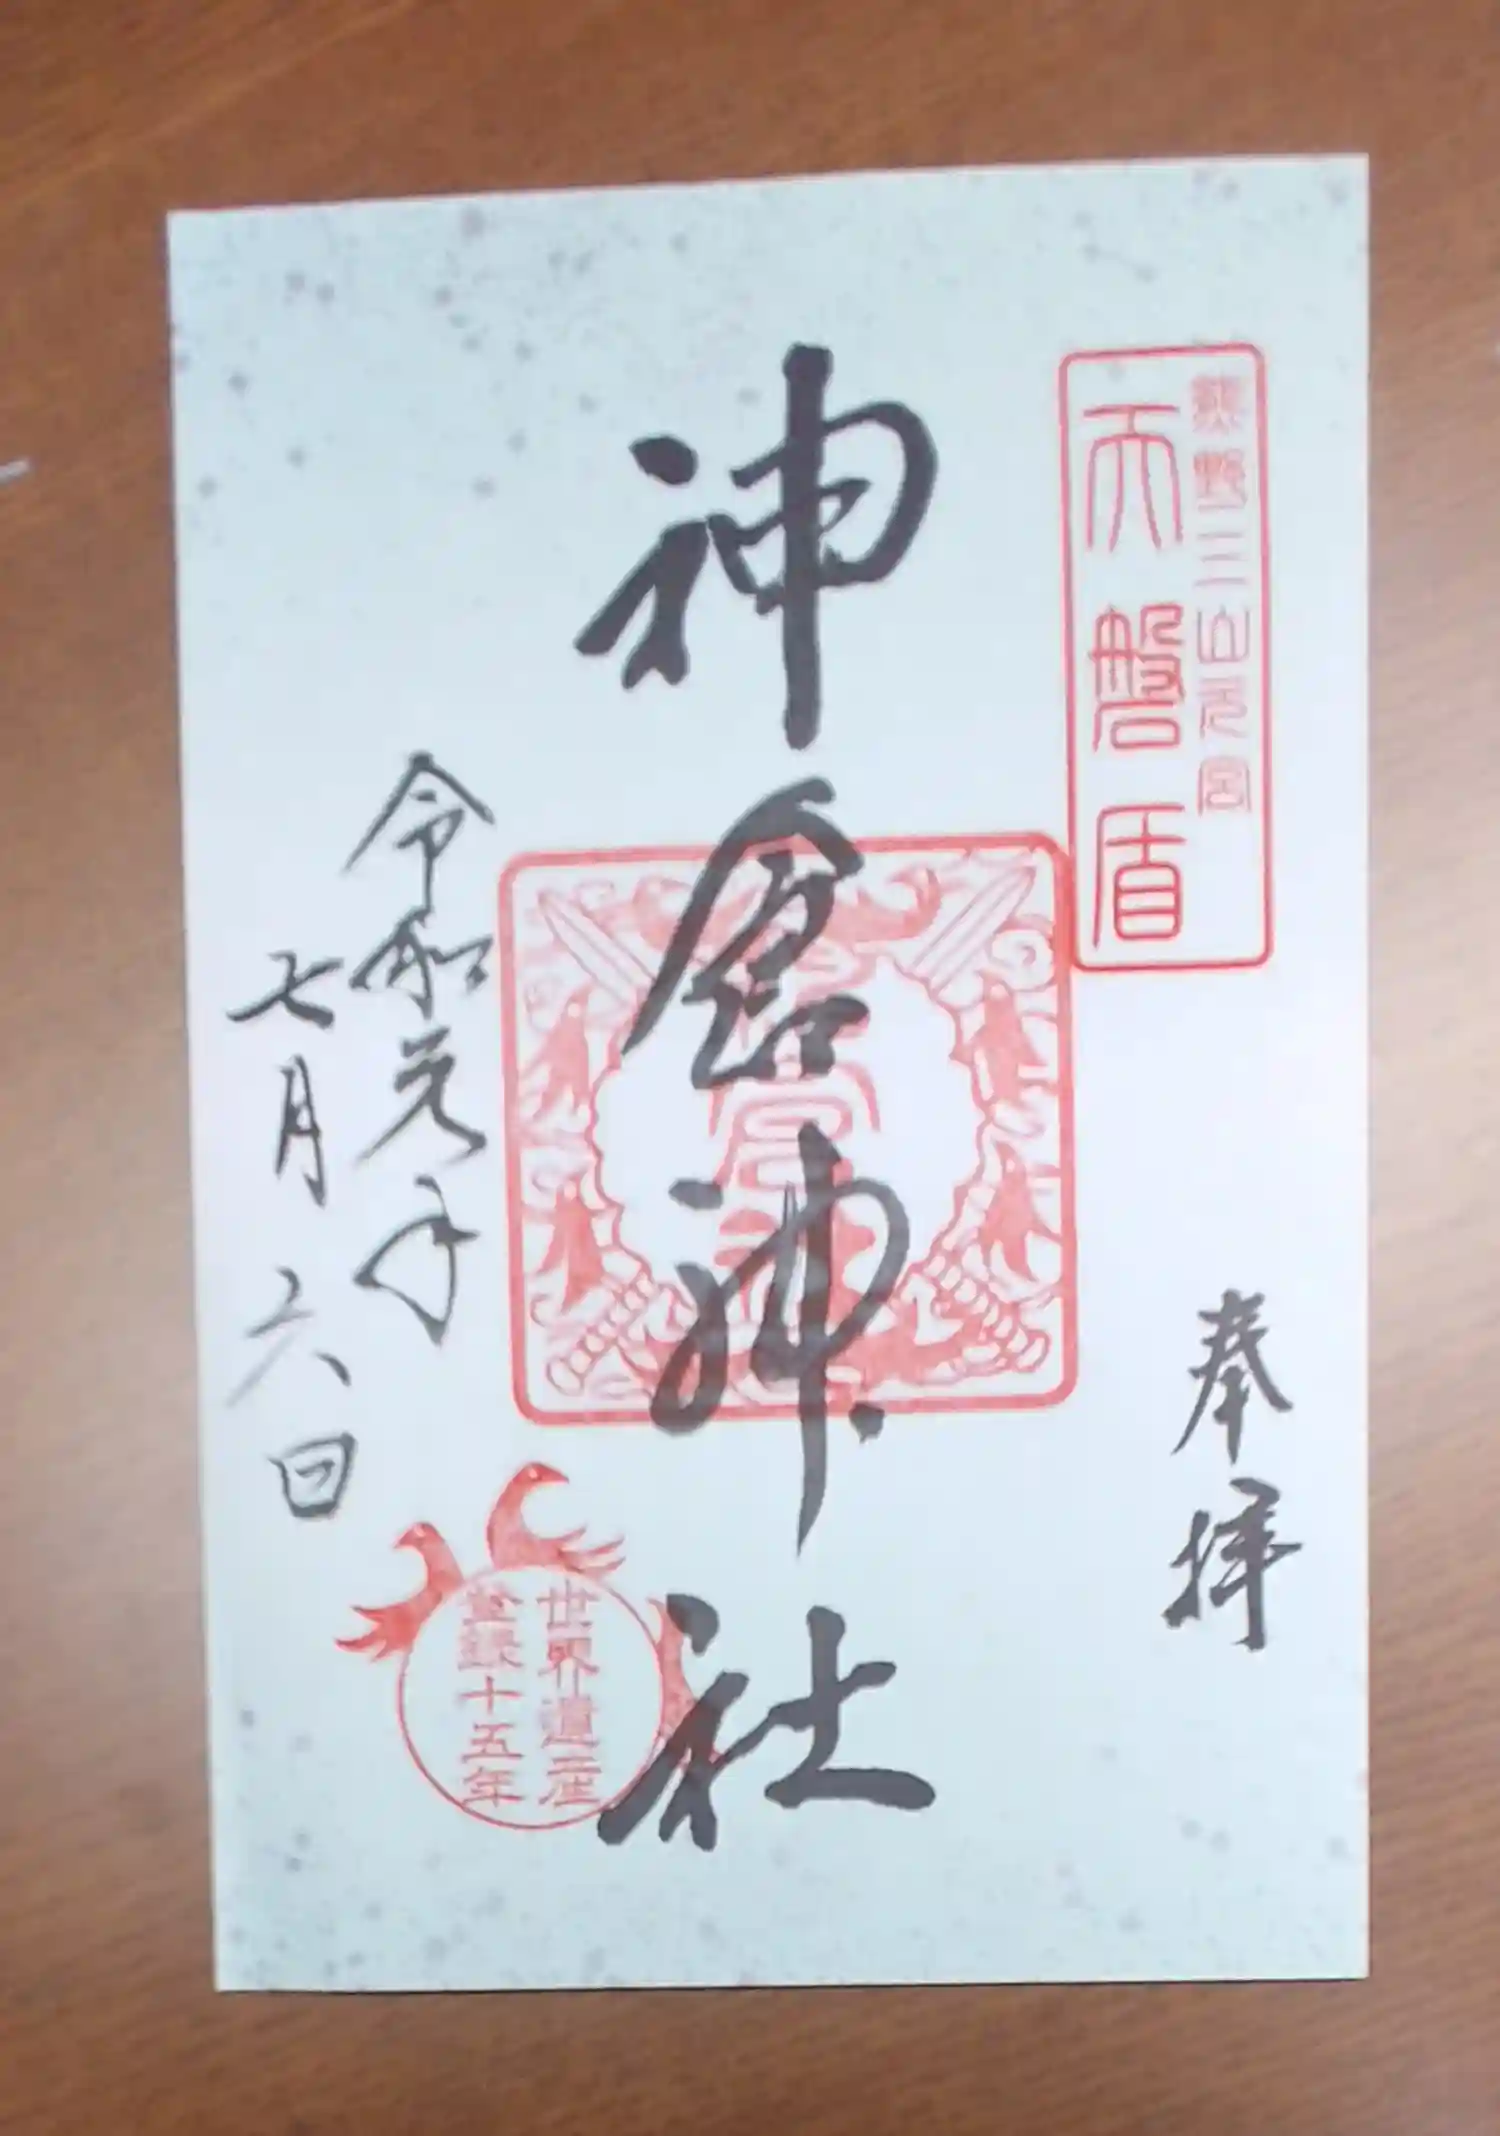 熊野三山元宮
天磐盾
奉拝
神倉神社
令和元年
七月六日
世界遺産
登録十五年